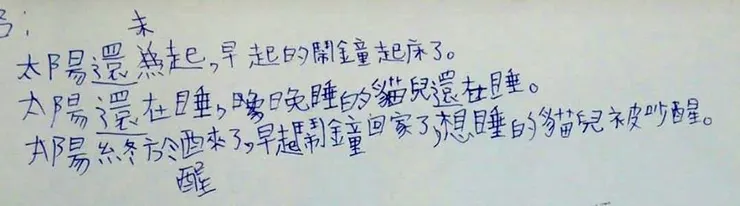 未
太陽還為起,早起的鬧鐘起床了。
太陽還在睡,晚睡的貓兒還在睡。
太陽終於酉來了,早起鬧鐘回家了,想睡的貓兒被吵醒。
醒